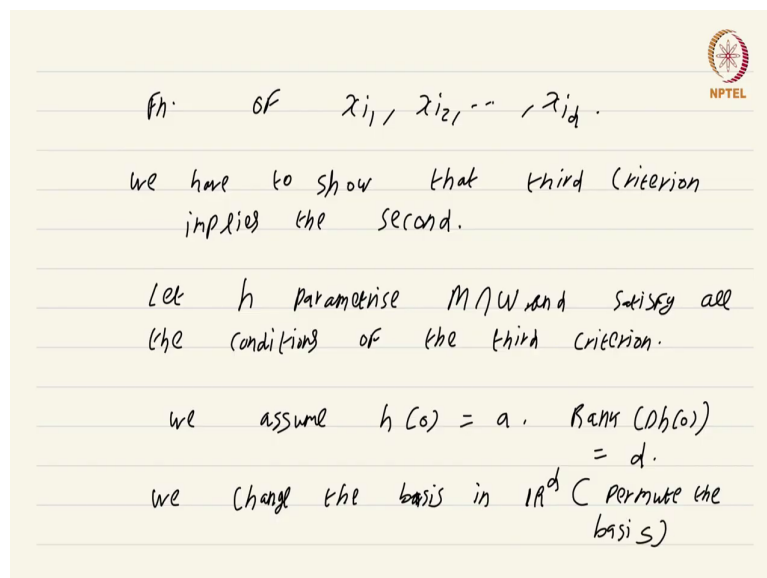 NPTEL
Fn. OF xi₁, xi₂, -- , xi_d.
we have to show that third criterion
implies the second.
Let h parametrise M∩W and satisfy all
the conditions of the third criterion.
we assume h(0) = a. Rank (Dh(0))
= d.
we change the basis in ℝᵈ ( permute the
basis)